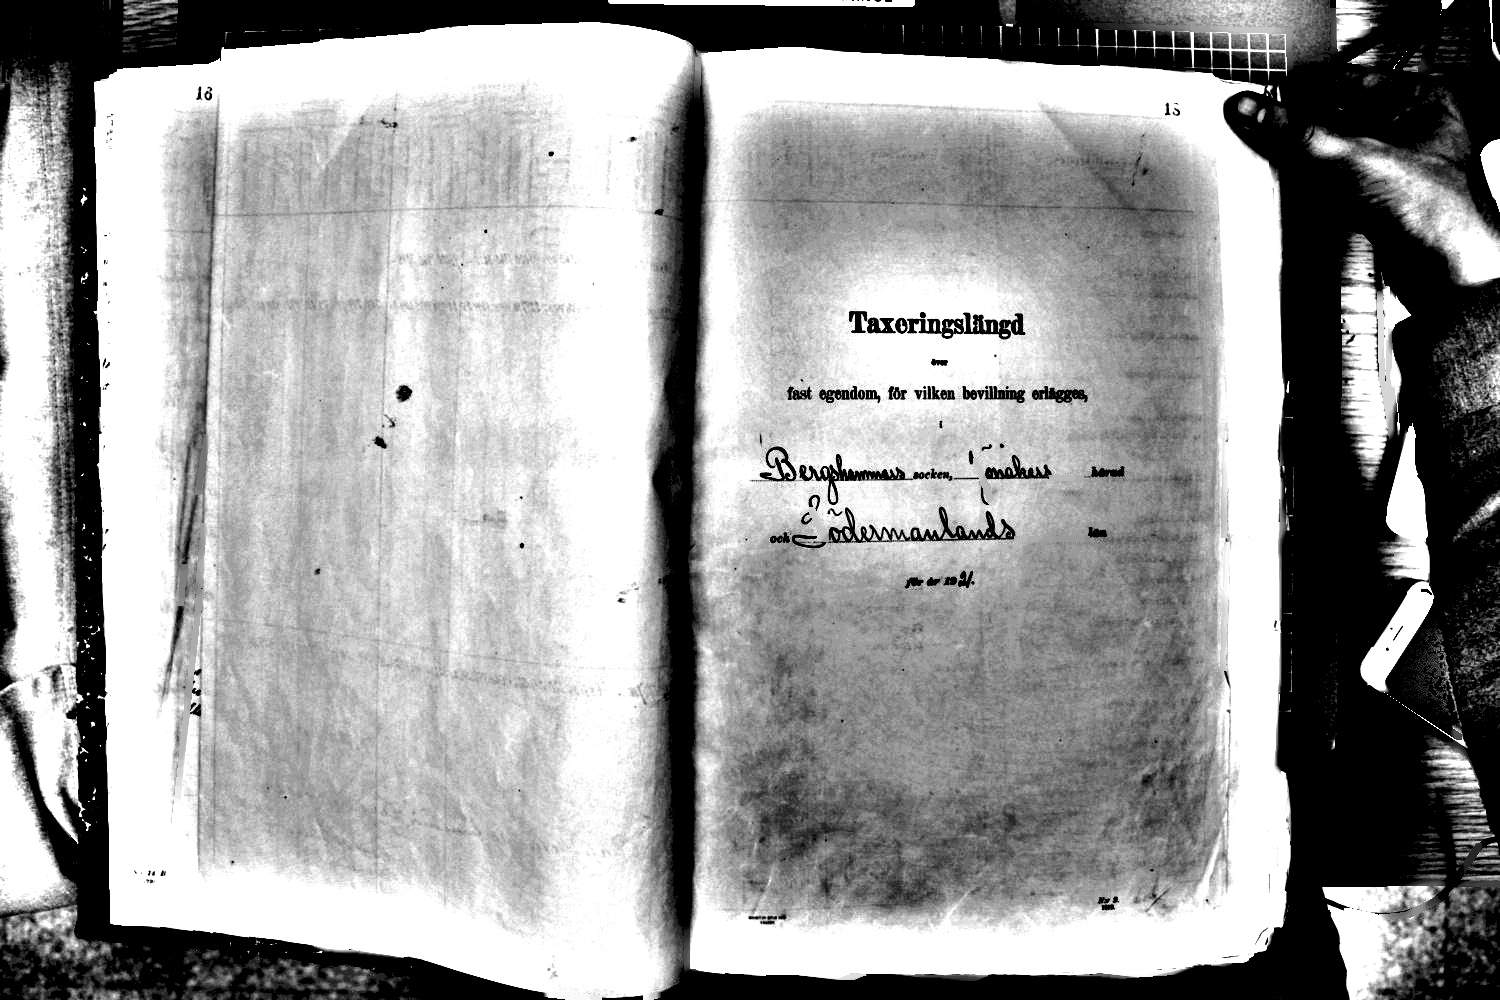 16
15
Taxeringslängd
över
fast egendom, för vilken bevillning erlägges,
i
Bergshammars socken, Rönökers härad
och Södermanlands län
för år 1921.
Nr 9.